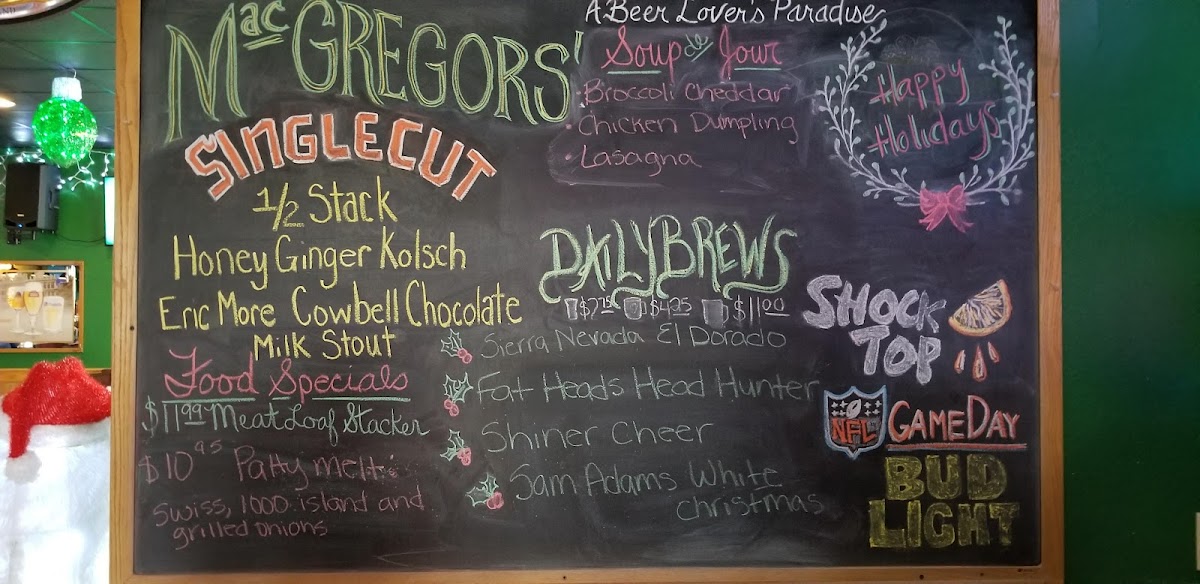 MacGREGORS'
SINGLECUT
1/2 Stack
Honey Ginger Kolsch
Eric More Cowbell Chocolate
Milk Stout
Food Specials
$11.99 Meat Loaf Stacker
$10.95 Patty Melt:
Swiss, 1000 island and
grilled onions
A Beer Lover's Paradise
Soup de Jour
• Broccoli Cheddar
• Chicken Dumpling
• Lasagna
DAILY BREWS
$4.25 $11.00
Sierra Nevada El Dorado
Fat Heads Head Hunter
Shiner Cheer
Sam Adams White
christmas
Happy
Holidays
SHOCK
TOP
NFL GAMEDAY
BUD
LIGHT